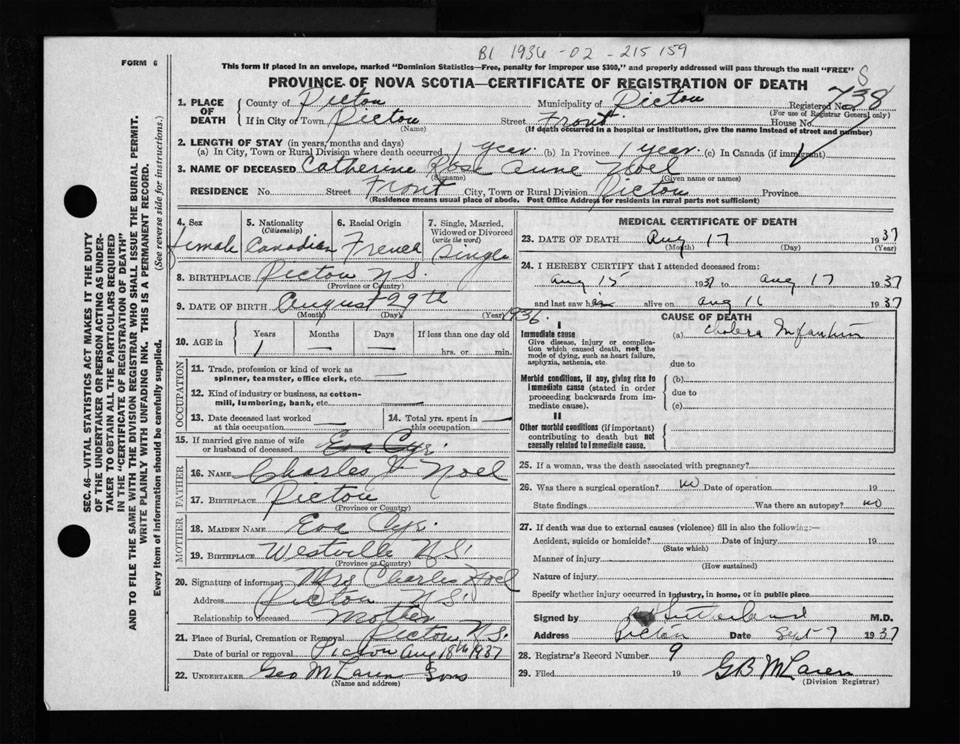 BL 1936 - 02 - 215 159
FORM 6
This form if placed in an envelope, marked "Dominion Statistics—Free, penalty for improper use $300," and properly addressed will pass through the mail "FREE"
PROVINCE OF NOVA SCOTIA—CERTIFICATE OF REGISTRATION OF DEATH
738
1. PLACE OF DEATH
County of Pictou Municipality of Pictou Registered No.
(For use of Registrar General only)
If in City or Town Pictou Street Front House No.
(Name) (If death occurred in a hospital or institution, give the name instead of street and number)
2. LENGTH OF STAY (in years, months and days)
(a) In City, Town or Rural Division where death occurred 1 year. (b) In Province 1 year. (c) In Canada (if immigrant)
3. NAME OF DECEASED Catherine Rose Anne Noel
(Surname) (Given name or names)
RESIDENCE No. Street Front City, Town or Rural Division Pictou Province
(Residence means usual place of abode. Post Office Address for residents in rural parts not sufficient)
4. Sex
Female
5. Nationality
(Citizenship)
Canadian
6. Racial Origin
French
7. Single, Married, Widowed or Divorced
(write the word)
Single
8. BIRTHPLACE Pictou N.S.
(Province or Country)
9. DATE OF BIRTH August 29th 1936.
(Month) (Day) (Year)
10. AGE in
Years Months Days If less than one day old
1 — — hrs. or min.
OCCUPATION
11. Trade, profession or kind of work as
spinner, teamster, office clerk, etc. —
12. Kind of industry or business, as cotton-
mill, lumbering, bank, etc. —
13. Date deceased last worked
at this occupation —
14. Total yrs. spent in
this occupation —
15. If married give name of wife
or husband of deceased Eva Cyr
FATHER
16. NAME Charles J Noel
17. BIRTHPLACE Pictou
(Province or Country)
MOTHER
18. MAIDEN NAME Eva Cyr.
19. BIRTHPLACE Westville N.S.
(Province or Country)
20. Signature of informant Mrs Charles Noel
Address Pictou N.S.
Relationship to deceased Mother
21. Place of Burial, Cremation or Removal Pictou N.S.
Date of burial or removal Pictou Aug 18th 1937
22. UNDERTAKER Geo McLaren Sons
(Name and address)
MEDICAL CERTIFICATE OF DEATH
23. DATE OF DEATH Aug 17 1937
(Month) (Day) (Year)
24. I HEREBY CERTIFY that I attended deceased from:
Aug 15 1937 to Aug 17 1937
and last saw her alive on Aug 16 1937
CAUSE OF DEATH
I
Immediate cause
Give disease, injury or complica-
tion which caused death, not the
mode of dying, such as heart failure,
asphyxia, asthenia, etc.
(a) Cholera Infantum
due to
Morbid conditions, if any, giving rise to
immediate cause (stated in order
proceeding backwards from im-
mediate cause).
(b)
due to
(c)
II
Other morbid conditions (if important)
contributing to death but not
causally related to immediate cause.
25. If a woman, was the death associated with pregnancy?
26. Was there a surgical operation? no Date of operation 19
State findings Was there an autopsy? no
27. If death was due to external causes (violence) fill in also the following:—
Accident, suicide or homicide? Date of injury 19
(State which)
Manner of injury
(How sustained)
Nature of injury
Specify whether injury occurred in industry, in home, or in public place
Signed by Sutherland M.D.
Address Pictou Date Sept 7 1937
28. Registrar's Record Number 9
29. Filed 19 G B McLaren
(Division Registrar)
SEC. 46—VITAL STATISTICS ACT MAKES IT THE DUTY
OF THE UNDERTAKER OR PERSON ACTING AS UNDER-
TAKER TO OBTAIN ALL THE PARTICULARS REQUIRED
IN THE "CERTIFICATE OF REGISTRATION OF DEATH"
AND TO FILE THE SAME WITH THE DIVISION REGISTRAR WHO SHALL ISSUE THE BURIAL PERMIT.
WRITE PLAINLY WITH UNFADING INK. THIS IS A PERMANENT RECORD.
Every item of information should be carefully supplied. (See reverse side for instructions.)